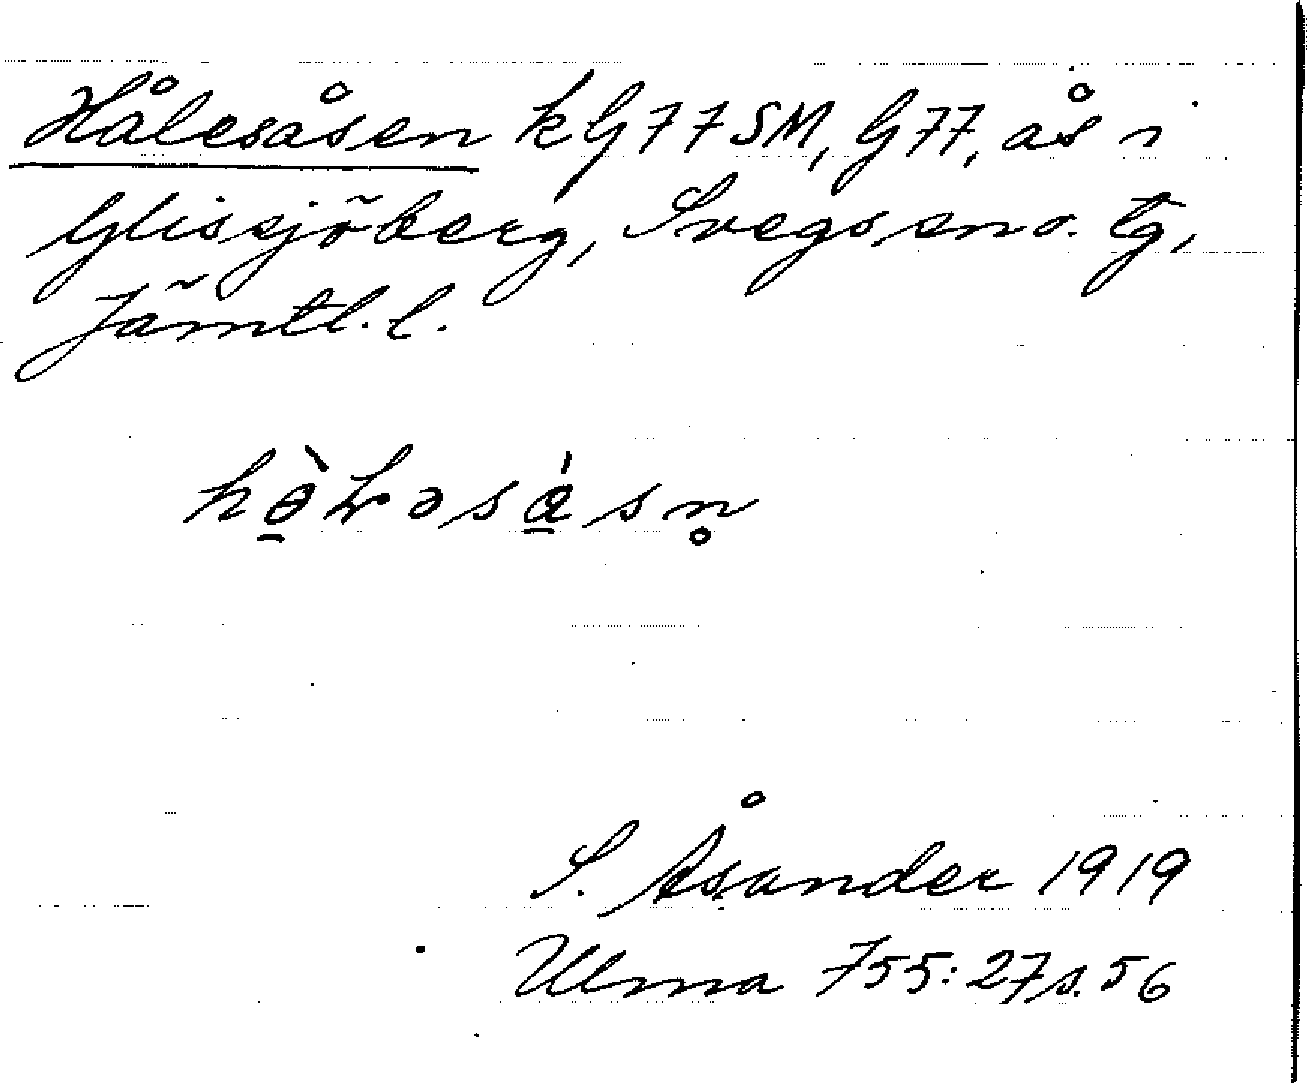 Hålesåsen k G77SM, G77, ås i
Glissjöberg, Svegs sn o. tg,
Jämtl. l.
hɵ̱̀ɫəsa̱̍sn̥
S. Åsander 1919
Ulma 755:27 s. 56